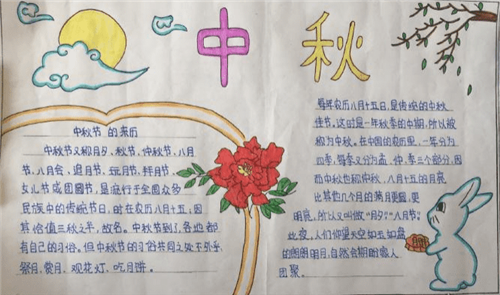 中秋
中秋节的来历
中秋节又称月夕、秋节、仲秋节、八月
节、八月会、追月节、玩月节、拜月节、
女儿节或团圆节,是流行于全国众多
民族中的传统节日,时在农历八月十五;因
其恰值三秋之半,故名。中秋节到了各地都
有自己的习俗。但中秋节的习俗共同之处不外乎
祭月、赏月、观花灯、吃月饼。
每年农历八月十五日,是传统的中秋
佳节。这时是一年秋季的中期,所以被
称为中秋。在中国的农历里,一年分为
四季,每季又分为孟、仲、季三个部分,因
而中秋也称仲秋。八月十五的月亮
比其他几个月的满月更圆,更
明亮,所以又叫做“月夕”“八月节”。
此夜,人们仰望天空如玉如盘
的朗朗明月,自然会期盼家人
团聚。